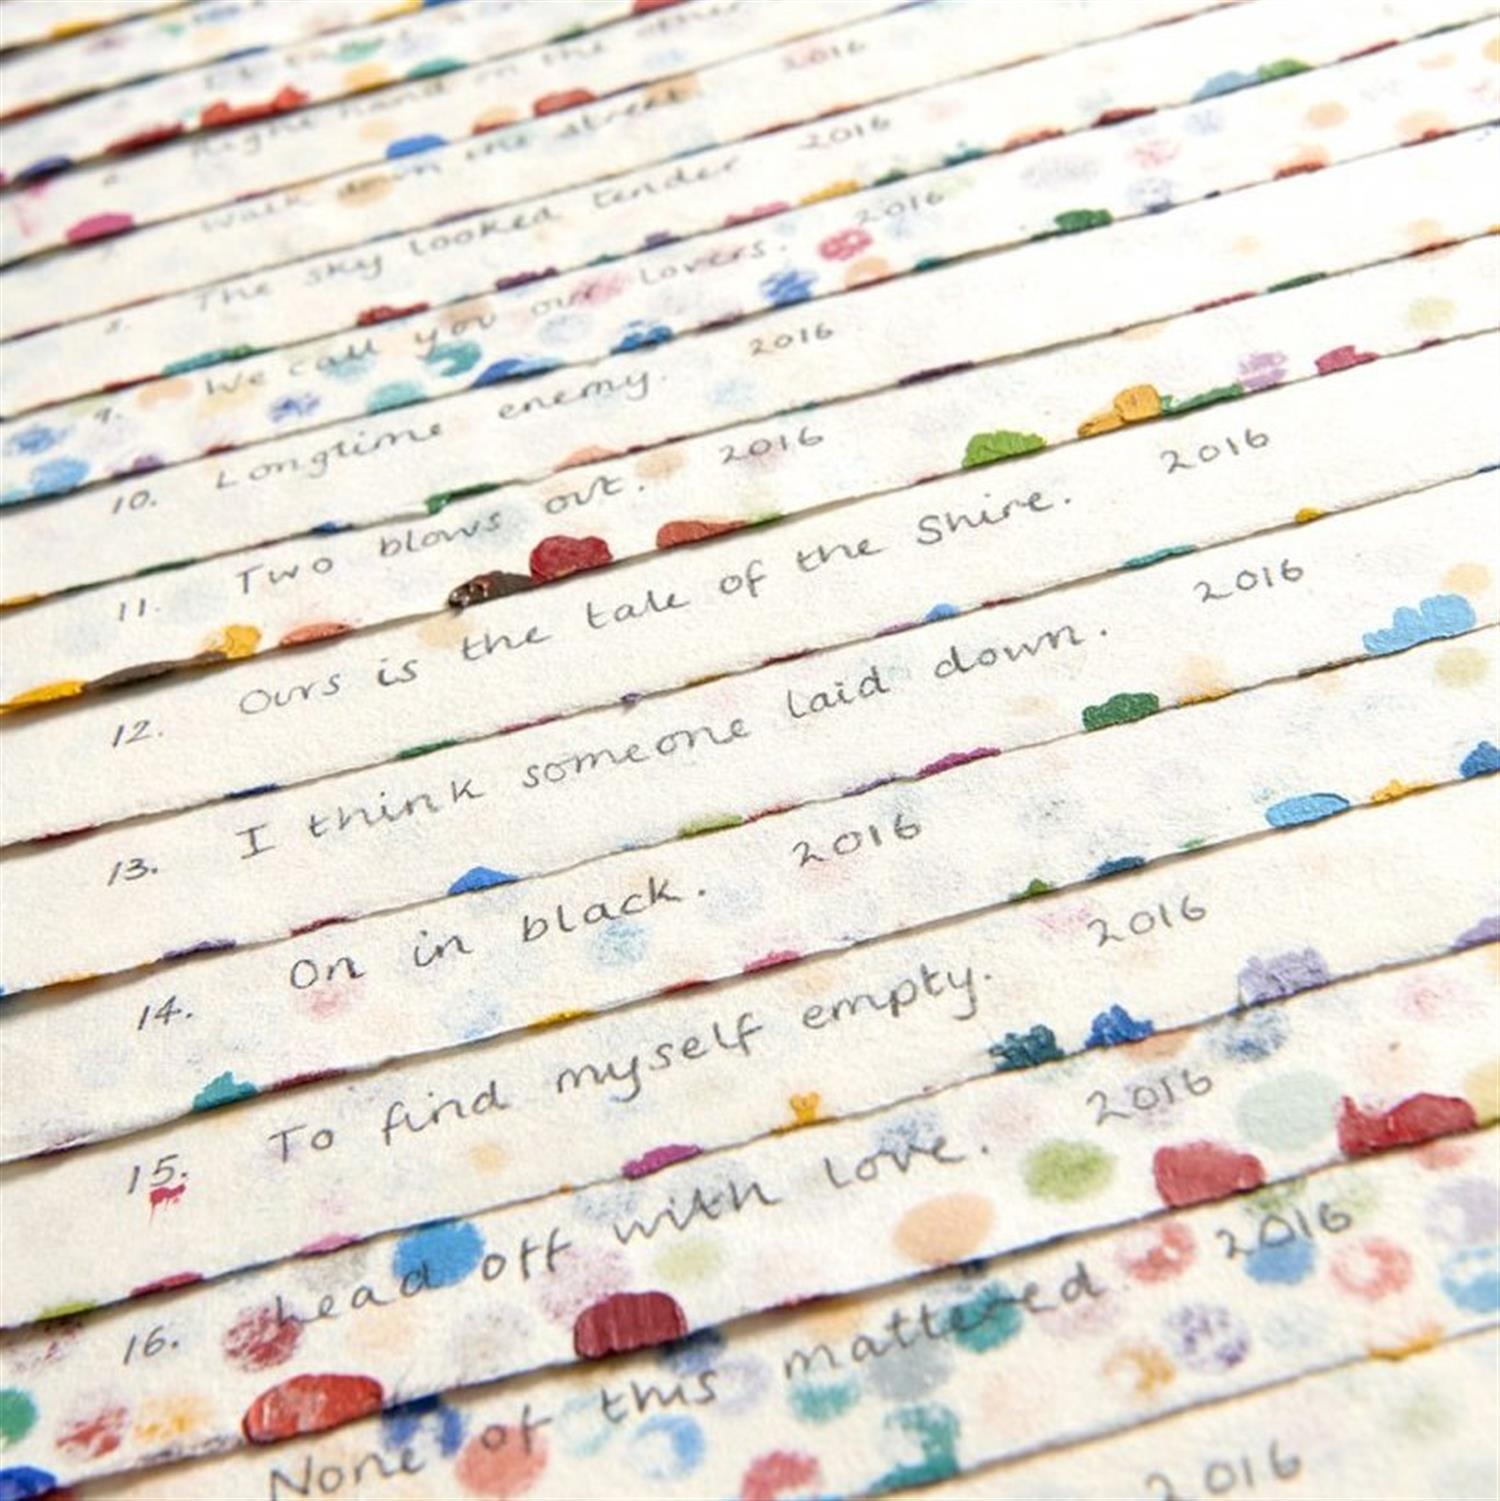 2016
Right hand on the other
2016
Walk down the street
8. The sky looked tender 2016
9. We call you our lovers. 2016
10. Longtime enemy. 2016
11. Two blows out. 2016
12. Ours is the tale of the Shire. 2016
13. I think someone laid down. 2016
14. On in black. 2016
15. To find myself empty. 2016
16. Lead off with love. 2016
None of this mattered. 2016
2016